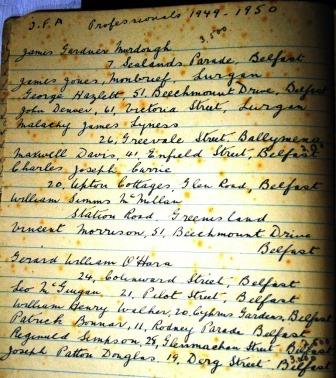 I.F.A Professionals 1949-1950
3,500
James Gardner Murdough
7 Sealands Parade, Belfast
James Jones, Monbrief, Lurgan
George Hazlett, 51, Beechmount Drive, Belfast
John Denver, 61, Victoria Street, Lurgan
Malachy James Lyness
26, Greenvale Street Ballymena
Maxwell Davis, 41, Enfield Street, Belfast
Charles Joseph Currie
20, Upton Cottages, Glen Road, Belfast
William Simms McMillan
Station Road Greenisland
Vincent Morrison, 51, Beechmount Drive
Belfast
Gerard William O'Hara
24, Colinward Street, Belfast
Leo McGuigan 21, Pilot Street, Belfast
William Henry Walker, 20, Cyprus Gardens, Belfast
Patrick Bonnar, 11, Rodney Parade Belfast
Reginald Simpson, 25, Glenmachan Street Belfast
Joseph Patton Douglas, 19, Derg Street Belfast